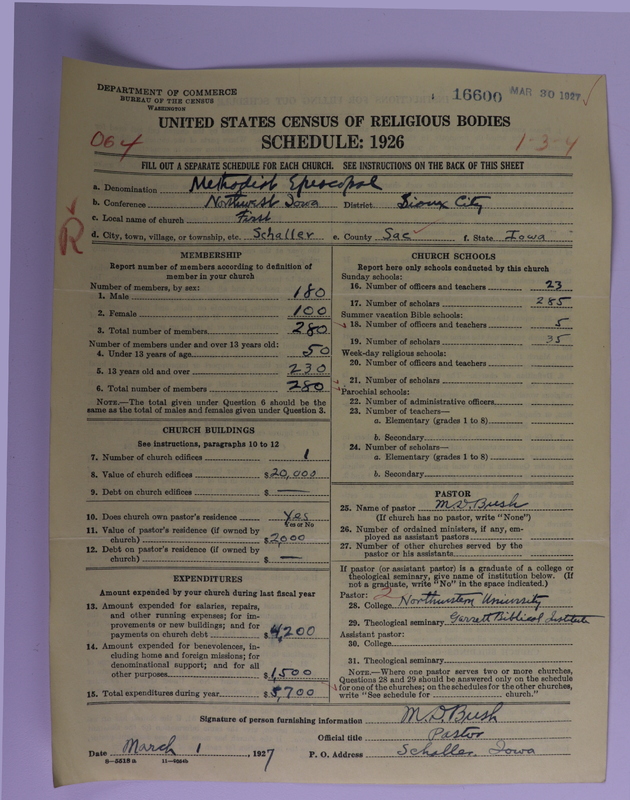 DEPARTMENT OF COMMERCE
BUREAU OF THE CENSUS
WASHINGTON
16600 MAR 30 1927
UNITED STATES CENSUS OF RELIGIOUS BODIES
064 SCHEDULE: 1926 1-3-4
FILL OUT A SEPARATE SCHEDULE FOR EACH CHURCH. SEE INSTRUCTIONS ON THE BACK OF THIS SHEET
a. Denomination Methodist Episcopal
b. Conference Northwest Iowa District Sioux City
c. Local name of church First
d. City, town, village, or township, etc. Schaller e. County Sac f. State Iowa
R
MEMBERSHIP
Report number of members according to definition of
member in your church
Number of members, by sex:
1. Male 180
2. Female 100
3. Total number of members 280
Number of members under and over 13 years old:
4. Under 13 years of age 50
5. 13 years old and over 230
6. Total number of members 280
NOTE.—The total given under Question 6 should be the
same as the total of males and females given under Question 3.
CHURCH BUILDINGS
See instructions, paragraphs 10 to 12
7. Number of church edifices 1
8. Value of church edifices $20,000
9. Debt on church edifices $ —
10. Does church own pastor's residence Yes
Yes or No
11. Value of pastor's residence (if owned by
church) $2,000
12. Debt on pastor's residence (if owned by
church) $ —
EXPENDITURES
Amount expended by your church during last fiscal year
13. Amount expended for salaries, repairs,
and other running expenses; for im-
provements or new buildings; and for
payments on church debt $4,200
14. Amount expended for benevolences, in-
cluding home and foreign missions; for
denominational support; and for all
other purposes $1,500
15. Total expenditures during year $5,700
CHURCH SCHOOLS
Report here only schools conducted by this church
Sunday schools:
16. Number of officers and teachers 23
17. Number of scholars 285
Summer vacation Bible schools:
18. Number of officers and teachers 5
19. Number of scholars 35
Week-day religious schools:
20. Number of officers and teachers
21. Number of scholars
Parochial schools:
22. Number of administrative officers
23. Number of teachers—
a. Elementary (grades 1 to 8)
b. Secondary
24. Number of scholars—
a. Elementary (grades 1 to 8)
b. Secondary
PASTOR
25. Name of pastor M. D. Bush
(If church has no pastor, write "None")
26. Number of ordained ministers, if any, em-
ployed as assistant pastors
27. Number of other churches served by the
pastor or his assistants
If pastor (or assistant pastor) is a graduate of a college or
theological seminary, give name of institution below. (If
not a graduate, write "No" in the space indicated.)
Pastor: 2
28. College Northwestern University
29. Theological seminary Garrett Biblical Institute
Assistant pastor:
30. College
31. Theological seminary
NOTE.—Where one pastor serves two or more churches,
Questions 28 and 29 should be answered only on the schedule
for one of the churches; on the schedules for the other churches,
write "See schedule for church."
Signature of person furnishing information M. D. Bush
Official title Pastor
Date March 1, 1927 P. O. Address Schaller, Iowa